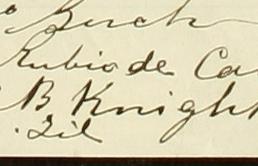 Birch
Rubio de Ca
B Knight
Gil